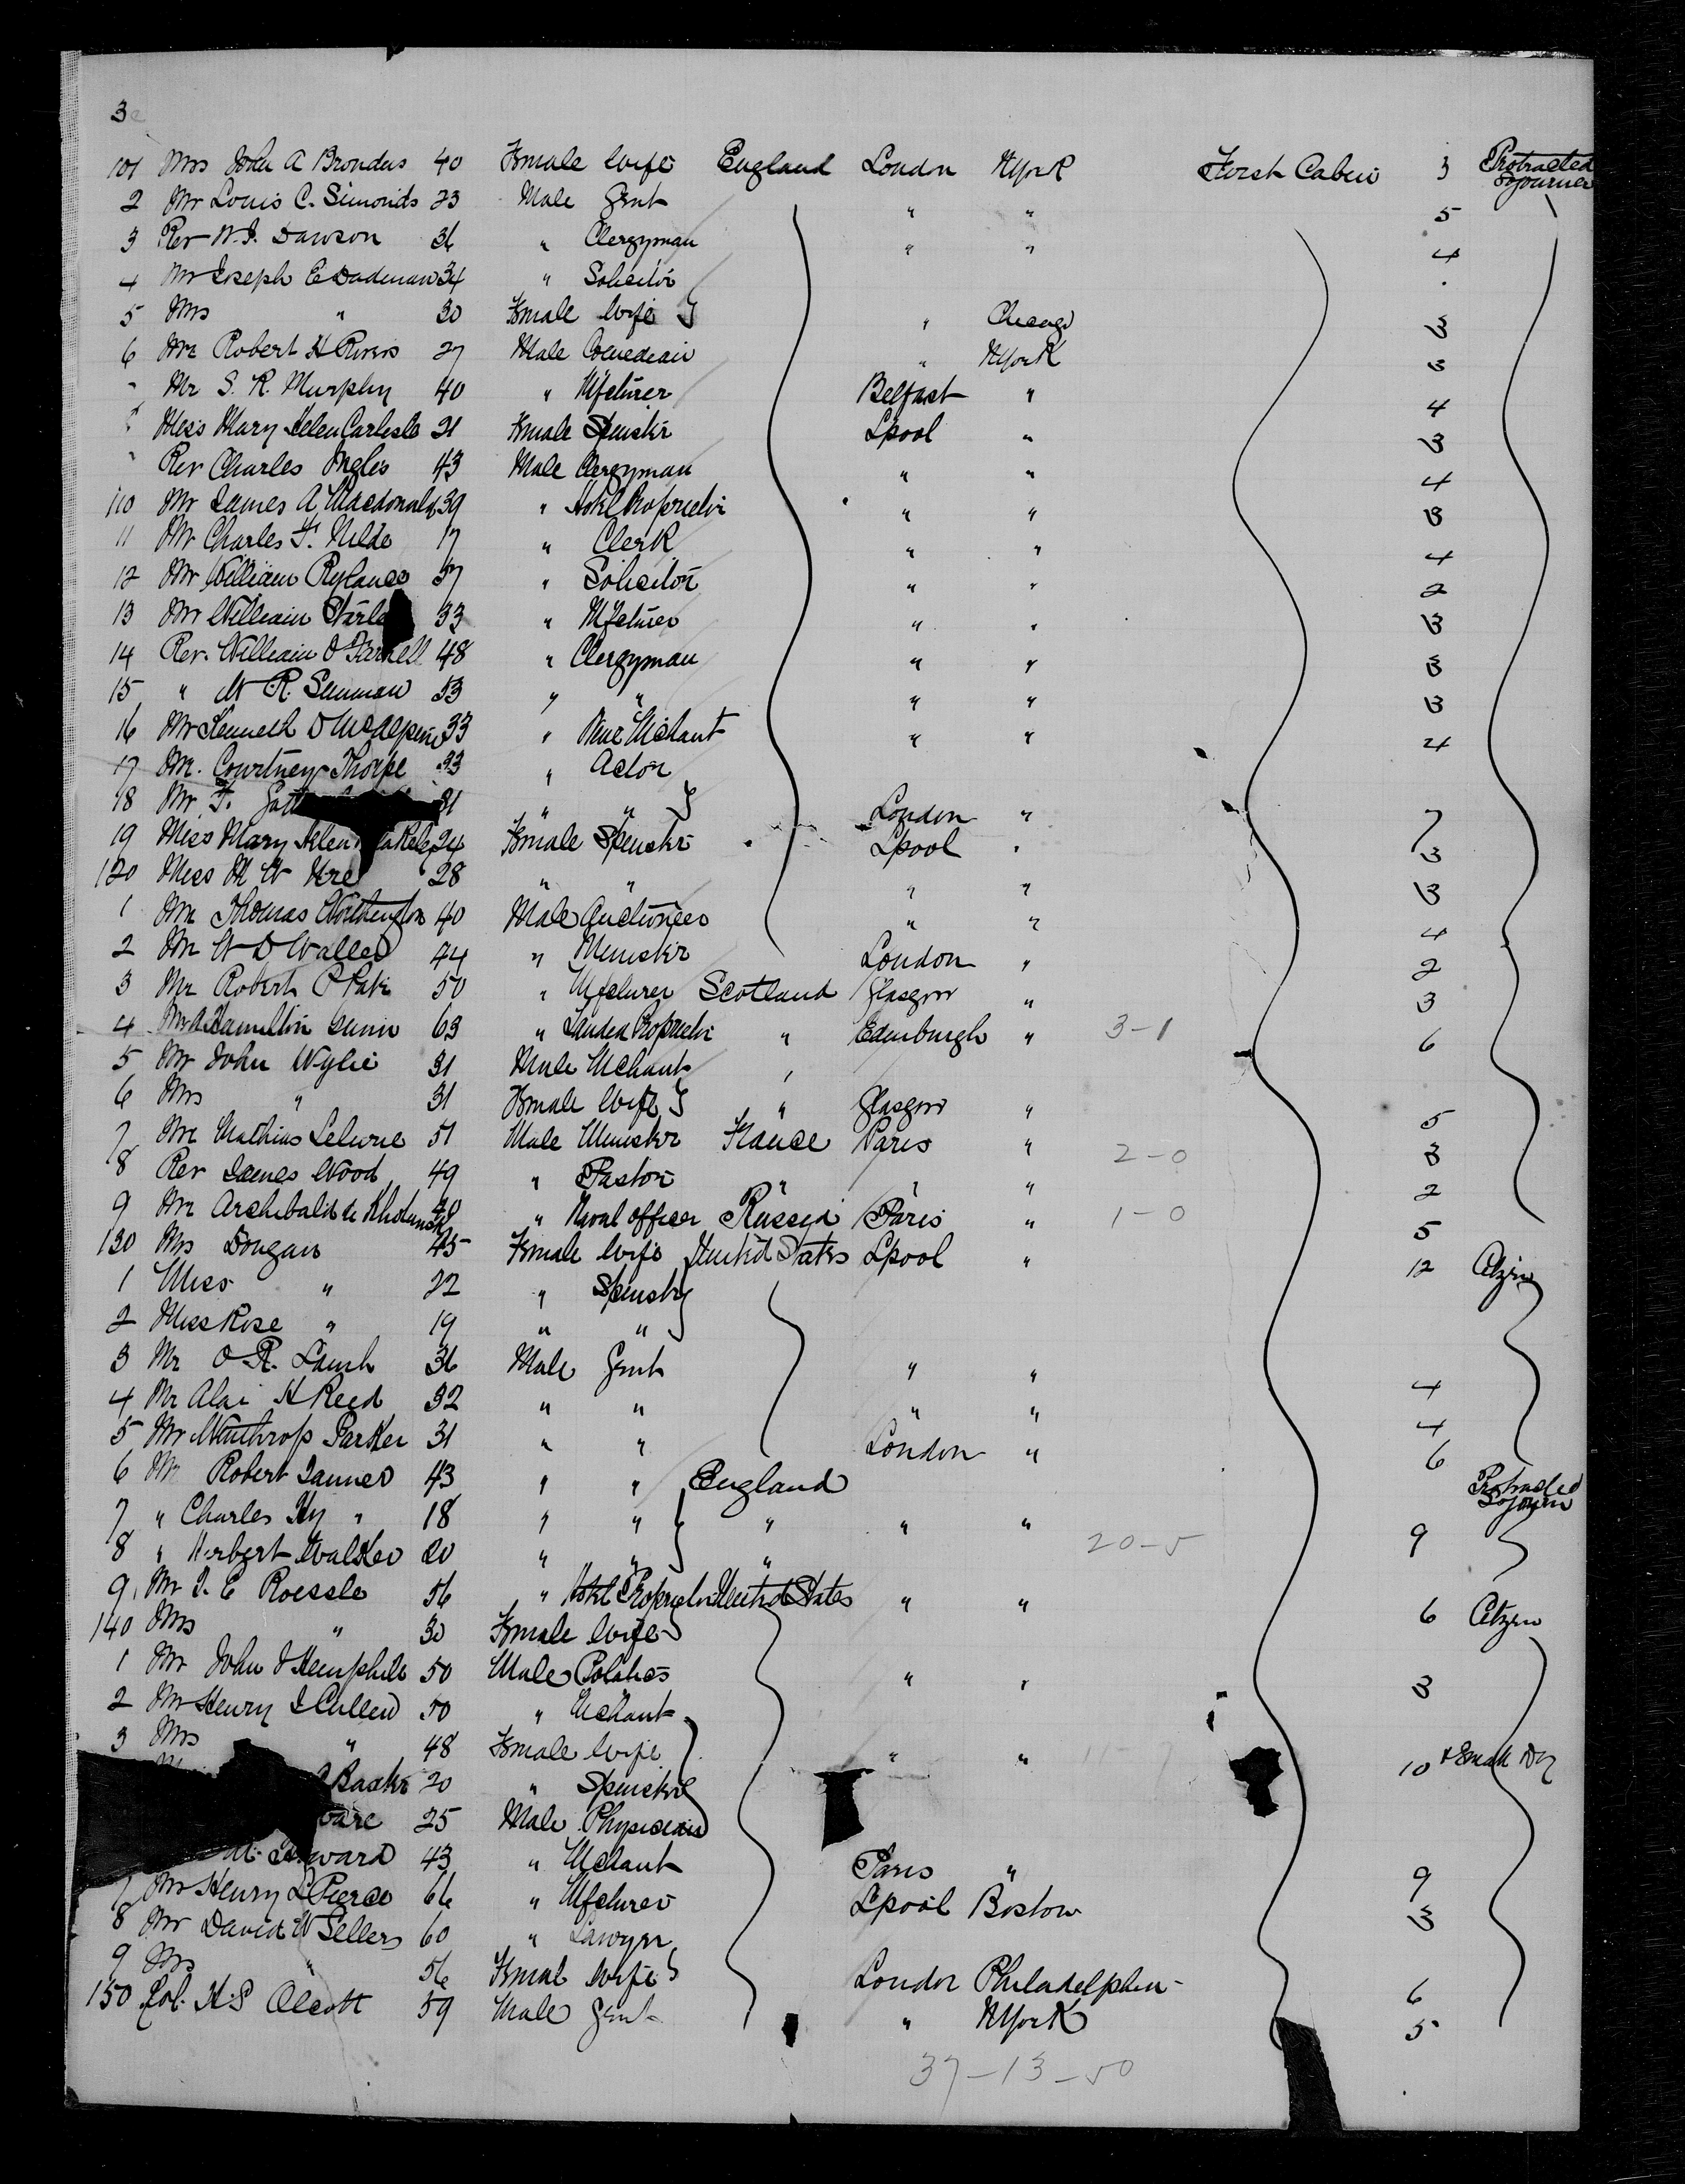 3
101 Mrs John A Brondus 40 Female Wife England London NYork First Cabin 3 Protracted Sojourner
2 Mr Louis C. Simonds 23 Male Gent " " 5
3 Rev W. J. Dawson 36 " Clergyman " " 4
4 Mr Joseph E Dadman 34 " Solicitor
5 Mrs " 30 Female Wife " Chicago 3
6 Mr Robert H 27 Male Comedian " NYork 3
" Mr S. R. Murphy 40 " Mfcturer Belfast " 4
Miss Mary Helen Carlisle 21 Female Spinster Lpool " 3
" Rev Charles Inglis 43 Male Clergyman " " 4
110 Mr James A Macdonald 39 " Hotel Proprietor " " 3
11 Mr Charles F. Wilde 17 " Clerk " " 4
12 Mr William Rylance 37 " Solicitor " " 2
13 Mr William 33 " Mfcturer " " 3
14 Rev. William 48 " Clergyman " " 3
15 " R. 53 " " " " 3
16 Mr Kenneth D McAlpine 33 " Wine Mchant " " 4
17 Mr. Courtney Thorpe 33 " Actor
18 Mr F. 31 " " London " 7
19 Miss Mary Helen 24 Female Spinster Lpool " 3
120 Miss M W Ure 28 " " " " 3
1 Mr Thomas Worthington 40 Male Auctioneer " " 4
2 Mr W D Waller 44 " Minister London " 2
3 Mr Robert P Pate 50 " Mfcturer Scotland Glasgow " 3
4 Mr A Hamilton Gunn 63 " Landed Proprietor " Edinburgh " 3-1 6
5 Mr John Wylie 31 Male Mchant "
6 Mrs " 31 Female Wife " Glasgow " 5
7 Mr Mathias 51 Male Minister France Paris " 2-0 3
8 Rev James Wood 49 " Pastor " " " 2
9 Mr Archibald de 48 " Naval officer Russia Paris " 1-0 5
130 Mrs Dougan 45 Female Wife United States Lpool " 12 Citizen
1 Miss " 22 " Spinster
2 Miss Rose " 19 " "
3 Mr O. R. Lamb 36 Male Gent " " 4
4 Mr H Reed 32 " " " " 4
5 Mr Winthrop Parker 31 " " London " 6
6 Mr Robert Tanner 43 " " England Protracted Sojourn
7 " Charles Hy " 18 " " " " " 9
8 " Herbert Walker 20 " " " 20-5
9 Mr T. E Roessle 56 " Hotel Proprietor United States " " 6 Citizen
140 Mrs " 30 Female Wife
1 Mr John J Hemphill 50 Male Politics " " 3
2 Mr Henry J Cullen 50 " Mchant
3 Mrs " 48 Female Wife " " 11-7 10 & Small
20 " Spinster
25 Male Physician
Howard 43 " Mchant Paris " 9
7 Mr Henry L Pierce 66 " Mfcturer Lpool Boston 3
8 Mr David W Sellers 60 " Lawyer
9 Mrs " 56 Femal Wife London Philadelphia 6
150 Col. H. S Olcott 59 Male Gent " NYork 5
37-13-50